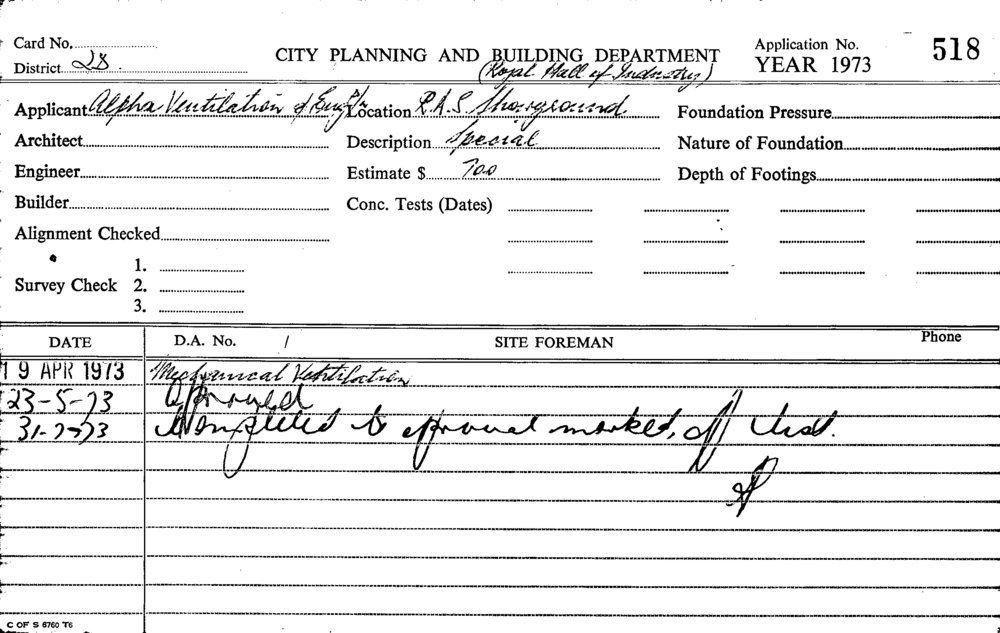 Card No.
CITY PLANNING AND BUILDING DEPARTMENT
Application No. 518
District 28
(Royal Hall of Industry)
YEAR 1973
Applicant Alpha Ventilation & Location R.A.S Showground Foundation Pressure
Architect Description Special Nature of Foundation
Engineer Estimate $ 700 Depth of Footings
Builder Conc. Tests (Dates)
Alignment Checked
1.
Survey Check 2.
3.
DATE D.A. No. / SITE FOREMAN Phone
19 APR 1973 Mechanical Ventilation
23-5-73 Approved
31-7-73 Completed to approval marked off
C OF S 6760 T6